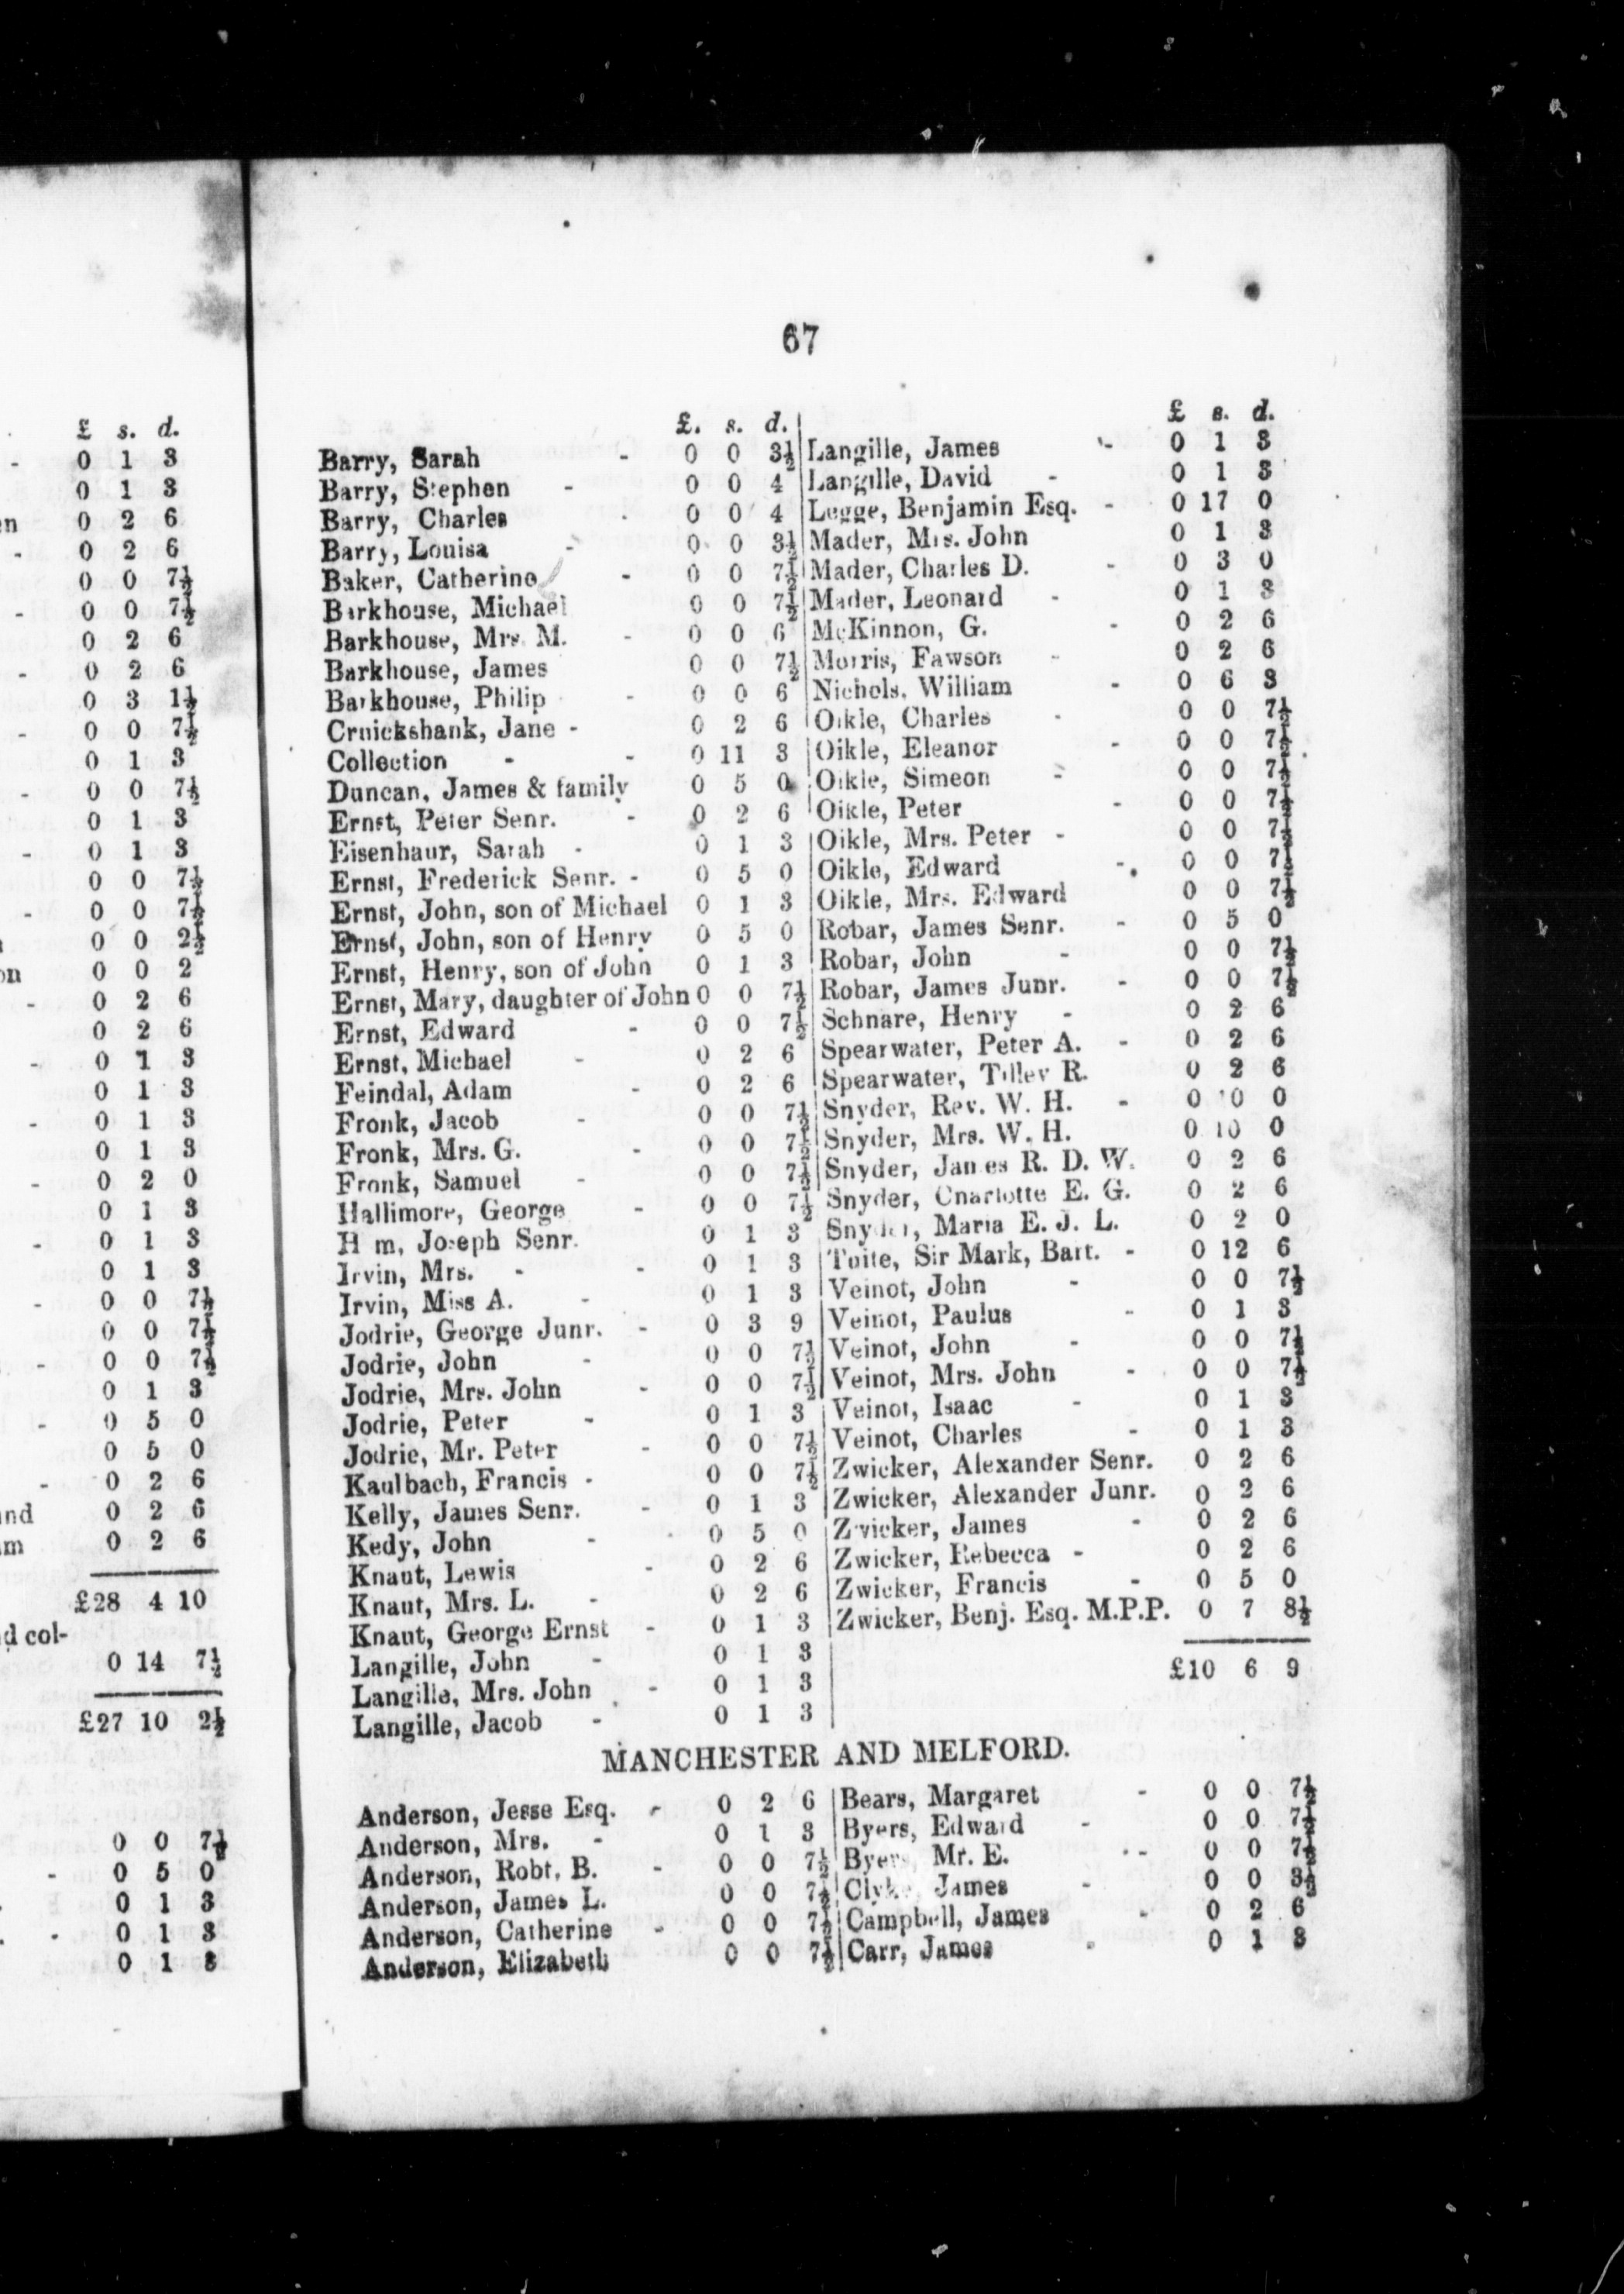 £ s. d.
- 0 1 3
0 1 3
en 0 2 6
- 0 2 6
0 0 7½
- 0 0 7½
0 2 6
- 0 2 6
0 3 1½
- 0 0 7½
0 1 3
- 0 0 7½
0 1 3
- 0 1 3
0 0 7½
- 0 0 7½
0 0 2½
on 0 0 2
- 0 2 6
0 2 6
- 0 1 3
0 1 3
- 0 1 3
0 1 3
- 0 2 0
0 1 3
- 0 1 3
0 1 3
- 0 0 7½
0 0 7½
- 0 0 7½
0 1 3
- 0 5 0
0 5 0
- 0 2 6
and 0 2 6
am 0 2 6
£28 4 10
d col-
0 14 7½
£27 10 2½
0 0 7½
- 0 5 0
0 1 3
- 0 1 3
0 1 3
67
£. s. d.
Barry, Sarah - 0 0 3½
Barry, Stephen - 0 0 4
Barry, Charles - 0 0 4
Barry, Louisa - 0 0 3½
Baker, Catherine - 0 0 7½
Barkhouse, Michael 0 0 7½
Barkhouse, Mrs. M. - 0 0 6
Barkhouse, James 0 0 7½
Barkhouse, Philip - 0 0 6
Cruickshank, Jane - 0 2 6
Collection - - 0 11 3
Duncan, James & family 0 5 0
Ernst, Peter Senr. - 0 2 6
Eisenhaur, Sarah - 0 1 3
Ernst, Frederick Senr. - 0 5 0
Ernst, John, son of Michael 0 1 3
Ernst, John, son of Henry 0 5 0
Ernst, Henry, son of John 0 1 3
Ernst, Mary, daughter of John 0 0 7½
Ernst, Edward - 0 0 7½
Ernst, Michael - 0 2 6
Feindal, Adam - 0 2 6
Fronk, Jacob - 0 0 7½
Fronk, Mrs. G. - 0 0 7½
Fronk, Samuel - 0 0 7½
Hallimore, George - 0 0 7½
H m, Joseph Senr. 0 1 3
Irvin, Mrs. - - 0 1 3
Irvin, Miss A. - 0 1 3
Jodrie, George Junr. - 0 3 9
Jodrie, John - 0 0 7½
Jodrie, Mrs. John - 0 0 7½
Jodrie, Peter - 0 1 3
Jodrie, Mr. Peter - 0 0 7½
Kaulbach, Francis - 0 0 7½
Kelly, James Senr. - 0 1 3
Kedy, John - 0 5 0
Knaut, Lewis - 0 2 6
Knaut, Mrs. L. - 0 2 6
Knaut, George Ernst - 0 1 3
Langille, John - 0 1 3
Langille, Mrs. John - 0 1 3
Langille, Jacob - 0 1 3
£ s. d.
Langille, James - 0 1 3
Langille, David - 0 1 3
Legge, Benjamin Esq. - 0 17 0
Mader, Mrs. John 0 1 3
Mader, Charles D. - 0 3 0
Mader, Leonard - 0 1 3
McKinnon, G. - 0 2 6
Morris, Fawson - 0 2 6
Nichols, William - 0 6 3
Oikle, Charles - 0 0 7½
Oikle, Eleanor - 0 0 7½
Oikle, Simeon - 0 0 7½
Oikle, Peter - 0 0 7½
Oikle, Mrs. Peter - 0 0 7½
Oikle, Edward - 0 0 7½
Oikle, Mrs. Edward 0 0 7½
Robar, James Senr. - 0 5 0
Robar, John - 0 0 7½
Robar, James Junr. - 0 0 7½
Schnare, Henry - 0 2 6
Spearwater, Peter A. - 0 2 6
Spearwater, Tilley R. 0 2 6
Snyder, Rev. W. H. - 0 10 0
Snyder, Mrs. W. H. 0 10 0
Snyder, James R. D. W. 0 2 6
Snyder, Charlotte E. G. 0 2 6
Snyder, Maria E. J. L. 0 2 0
Tuite, Sir Mark, Bart. - 0 12 6
Veinot, John - 0 0 7½
Veinot, Paulus - 0 1 3
Veinot, John - 0 0 7½
Veinot, Mrs. John - 0 0 7½
Veinot, Isaac - 0 1 3
Veinot, Charles - 0 1 3
Zwicker, Alexander Senr. 0 2 6
Zwicker, Alexander Junr. 0 2 6
Zwicker, James - 0 2 6
Zwicker, Rebecca - 0 2 6
Zwicker, Francis - 0 5 0
Zwicker, Benj. Esq. M.P.P. 0 7 8½
£10 6 9
MANCHESTER AND MELFORD.
Anderson, Jesse Esq. - 0 2 6
Anderson, Mrs. - 0 1 3
Anderson, Robt. B. - 0 0 7½
Anderson, James L. 0 0 7½
Anderson, Catherine - 0 0 7½
Anderson, Elizabeth 0 0 7½
Bears, Margaret - 0 0 7½
Byers, Edward - 0 0 7½
Byers, Mr. E. - 0 0 7½
Clyke, James - 0 0 3½
Campbell, James - 0 2 6
Carr, James - 0 1 3